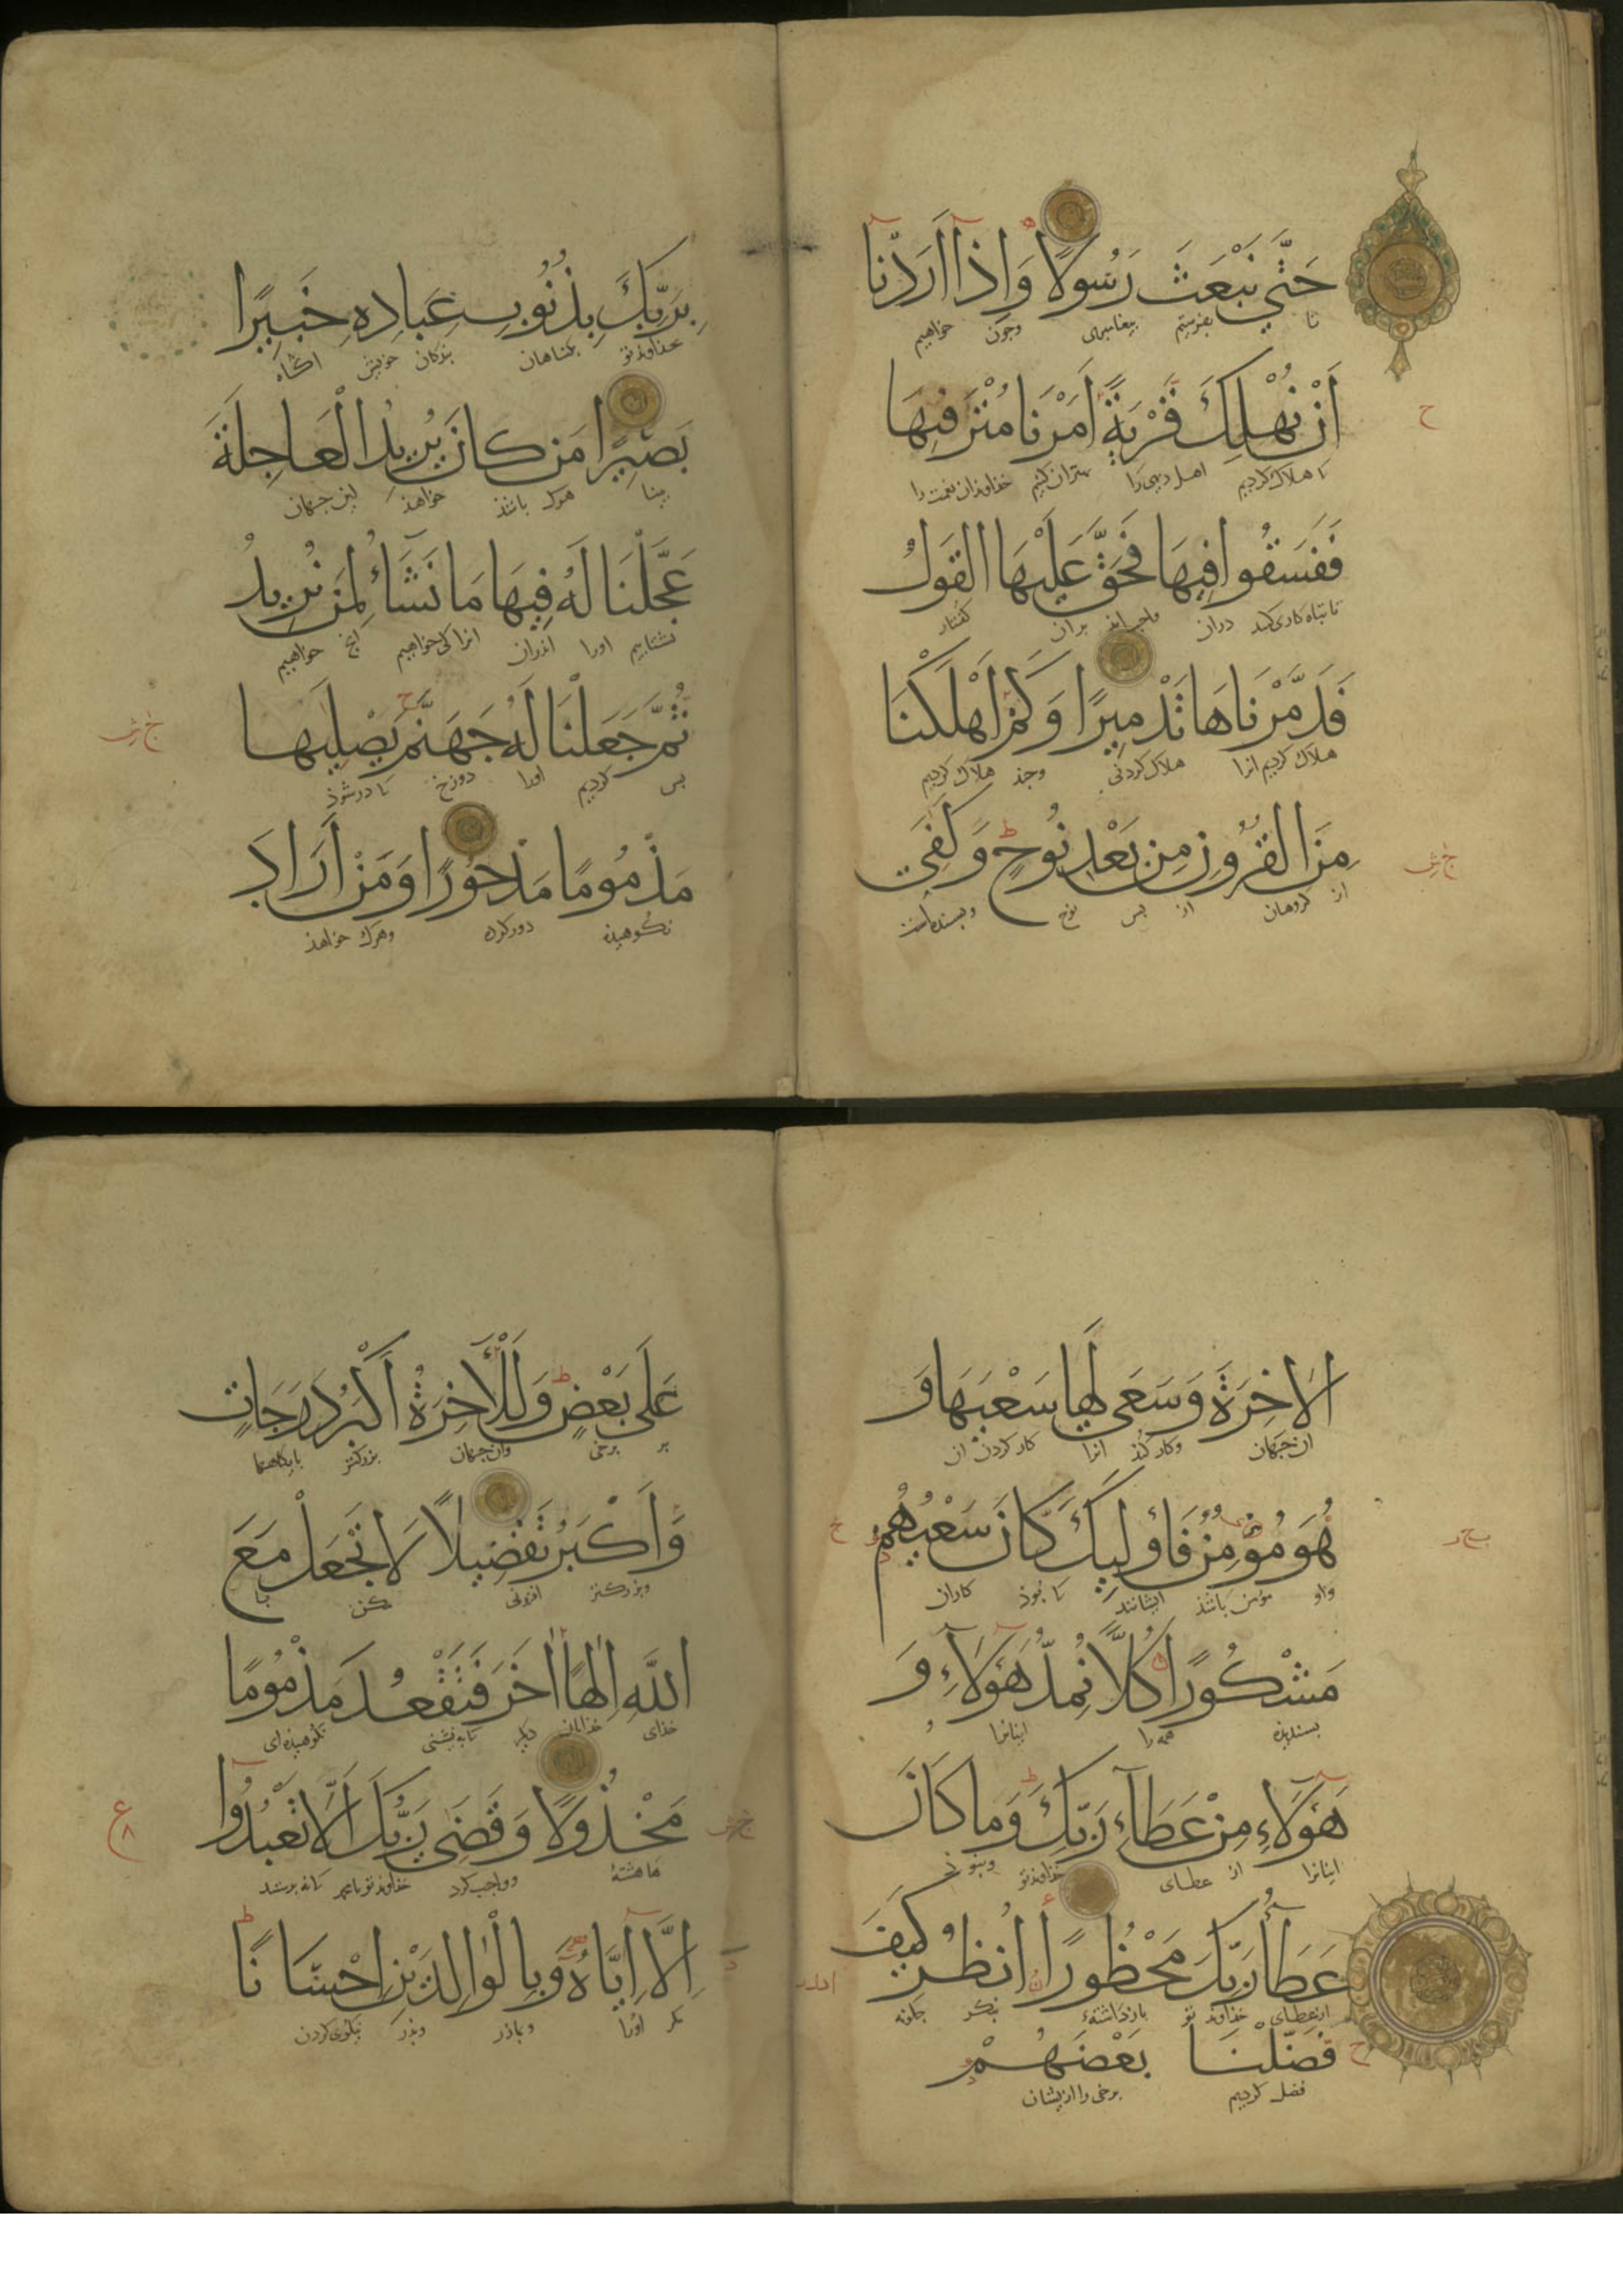 حَتَّى نَبْعَثَ رَسُولًا وَاِذَا اَرَدْنَا
تا بفرستیم پیغامبری وجون خواهیم
اَنْ نُهْلِكَ قَرْيَةً اَمَرْنَا مُتْرَفِيهَا
تا هلاک کردیم اهل دیهی را خداوندان نعمت را
فَفَسَقُوا فِيهَا فَحَقَّ عَلَيْهَا القَوْلُ
دران بران گفتار
فَدَمَّرْنَاهَا تَدْمِيرًا وَكَمْ اَهْلَكْنَا
هلاک کردیم انرا هلاک کردنی وجند هلاک کردیم
مِنَ القُرُونِ مِنْ بَعْدِ نُوحٍ وَكَفٰى
از کروهان از بس نوح
بِرَبِّكَ بِذُنُوبِ عِبَادِهِ خَبِيرًا
خداوندتو بکناهان بندکان خویش اکاه
بَصِيرًا مَنْ كَانَ يُرِيدُ الْعَاجِلَةَ
بینا هرک باشذ خواهذ این جهان
عَجَّلْنَا لَهُ فِيهَا مَا نَشَاءُ لِمَنْ نُرِيدُ
بشتابیم اورا اندران انرا کی خواهیم خواهیم
ثُمَّ جَعَلْنَا لَهُ جَهَنَّمَ يَصْلِيهَا
بس کردیم اورا دوزخ تا درشوذ
مَذْمُومًا مَدْحُورًا وَمَنْ اَرَادَ
نکوهیذه دورکرده وهرک خواهذ
الاٰخِرَةَ وَسَعَى لَهَا سَعْيَهَا وَ
ان جهان وکار کنذ انرا کار کردن ان
هُوَ مُؤْمِنٌ فَاُولٰئِكَ كَانَ سَعْيُهُمْ
واو مومن باشذ ایشانند تا بوذ کاران
مَشْكُورًا كُلًّا نُمِدُّ هٰؤُلَاءِ وَ
بسندیذه همه را اینانرا
هٰؤُلَاءِ مِنْ عَطَاءِ رَبِّكَ وَمَا كَانَ
اینانرا از عطای خداوندتو ونبوذ
عَطَاءُ رَبِّكَ مَحْظُورًا اُنْظُرْ كَيْفَ
ازعطای خداوند تو بازداشته بنکر جکونه
فَضَّلْنَا بَعْضَهُمْ
فضل کردیم برخی را ازیشان
عَلَى بَعْضٍ وَلَلْاٰخِرَةُ اَكْبَرُ دَرَجَاتٍ
بر برخی وان جهان بزرکتر بایکاهها
وَاَكْبَرُ تَفْضِيلًا لَا تَجْعَلْ مَعَ
وبزرکتر افزونی مکن با
اللّٰهِ اِلٰهًا اٰخَرَ فَتَقْعُدَ مَذْمُومًا
خذای دیکر تا بنشینی نکوهیذه ای
مَخْذُولًا وَقَضٰى رَبُّكَ اَلَّا تَعْبُدُوا
وواجب کرد
اِلَّا اِيَّاهُ وَبِالْوَالِدَيْنِ اِحْسَانًا
مکر اورا وبماذر وبذر نیکوی کردن